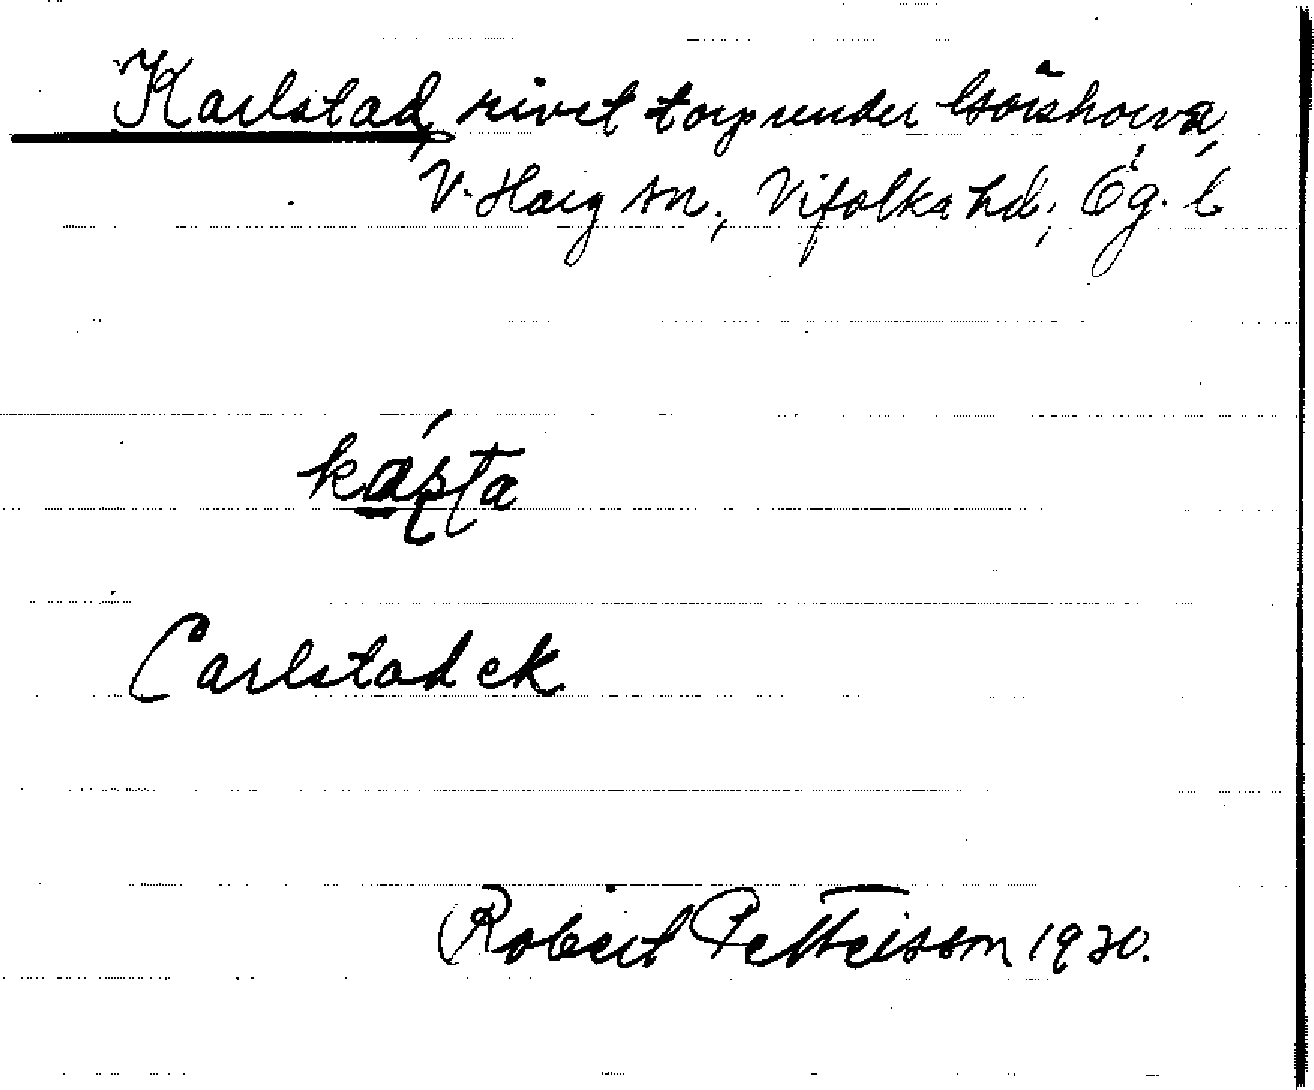 Karlstad, rivet torp under
V. Harg sn., Vifolka hd., Ög. l
Carlstad ek
Robert Pettersson 1930.